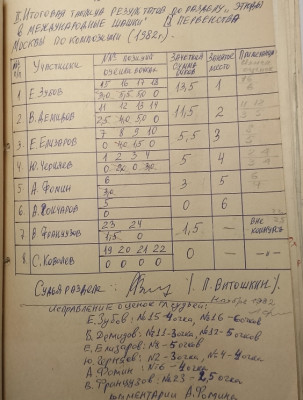 II. Итоговая таблица результатов по разделу „Этюды
в международные шашки" II Первенства
Москвы по композиции (1982г.)
№№ п/п Участники №№ позиций оценки, очки Зачётная сумма очков Занятое место Примечание
15 16 17 18
1 Е. Зубов 3,0 5,5 5,0 0 13,5 1
11 12 13 14
2 В. Демидов 2,5 4,0 5,0 0 11,5 2
7 8 9 10
3 Е. Елизаров 0 4,0 1,5 0 5,5 3
1 2 3 4
4 Ю. Черняев 5 4
6
5 А. Фомин 3,0 3 5
5
6 А. Гончаров 0 0 6
23 24
7 В. Французов 1,5 0 1,5 — вне конкурса
19 20 21 22
8 С. Ковалев 0 0 0 0 0 — —"—
Судья раздела: / П. Витошкин /.
Исправление оценок
Е. Зубов: №15-4 очка, №16-6 очков
В. Демидов: №11-3 очка, №12-5 очков
Е. Елизаров: №8-5 очков
Ю. Черняев: №2-3 очка, №4-4 очка
А. Фомин: №6-4 очка
В. Французов: №23-2,5 очка
комментарии А. Фомина